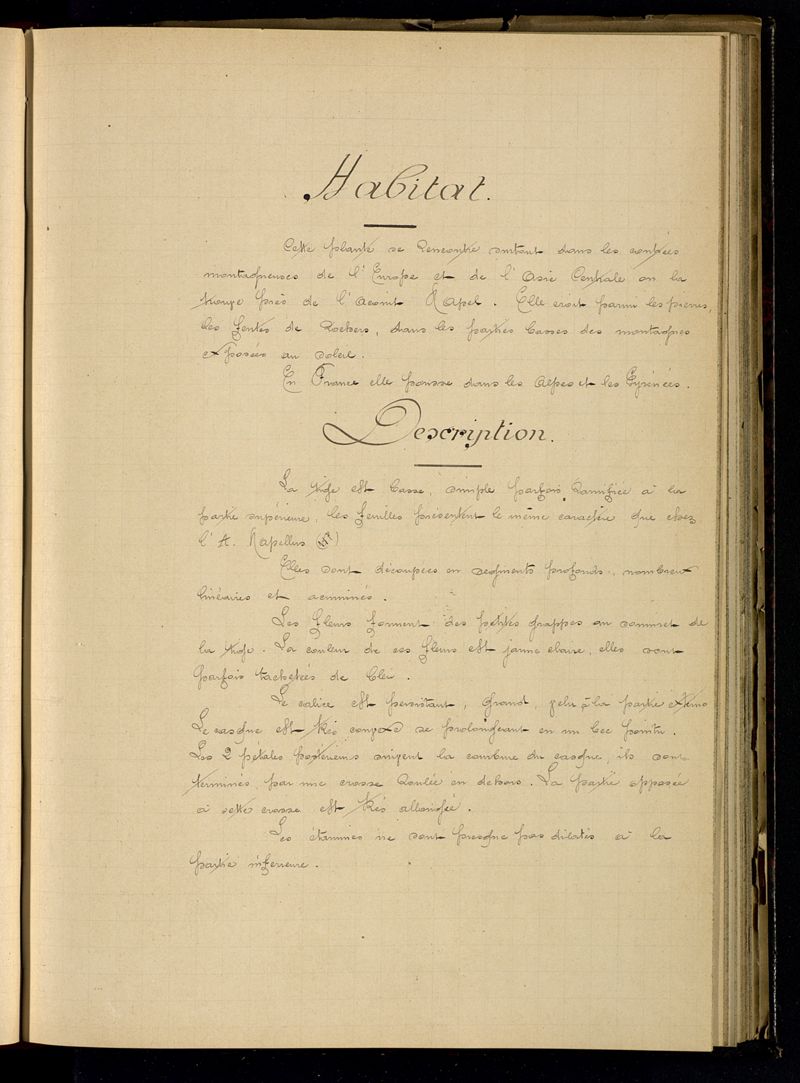 Habitat.
Cette plante se Rencontre surtout dans les contrées
montagneuses de l'Europe et de l'Asie Centrale on la
trouve près de l'Aconit Napel. Elle croit parmi les pierres,
les fentes de Rochers, dans les parties basses des montagnes
exposées au soleil.
En France elle pousse dans les Alpes et les Pyrénées.
Description.
La tige est basse, simple parfois Ramifiée à la
partie supérieure, les feuilles présentent le même caractère que chez
l'A. Napellus
Elles sont découpées en segments profonds, nombreux
linéaires et acuminés.
Les fleurs forment des petites grappes au sommet de
la tige. La couleur de ces fleurs est jaune claire, elles sont
parfois tachetées de bleu.
Le calice est persistant, grand, pelu à la partie externe
Le casque est très convexe se prolongeant en un bec pointu.
Les 2 pétales postérieurs suivent la courbure du casque, ils sont
terminés par une crosse Roulée en dehors. La partie opposée
à cette crosse est très allongée.
Les étamines ne sont presque pas dilatés à la
partie inférieure.